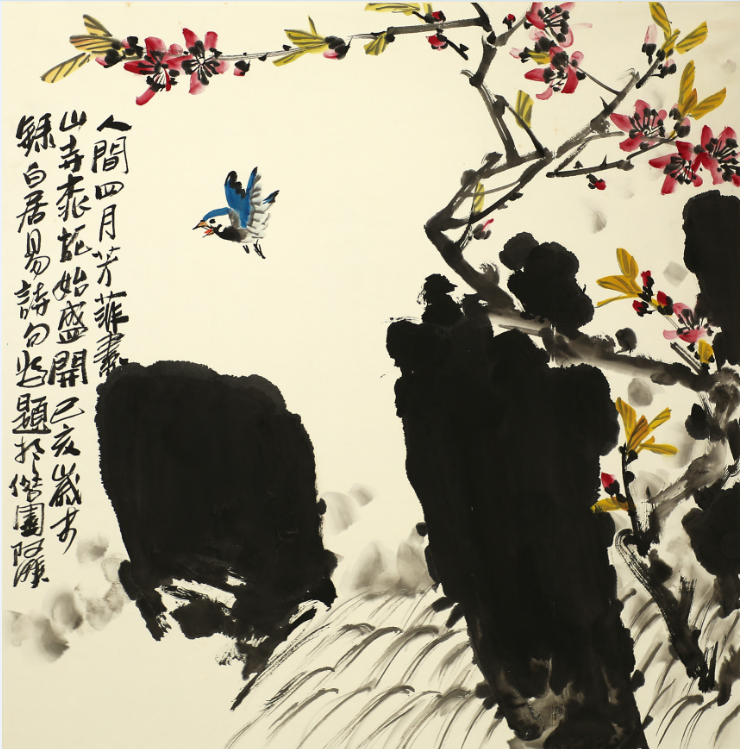 人間四月芳菲盡
山寺桃花始盛開己亥歲
錄白居易詩句並題於傑園阿